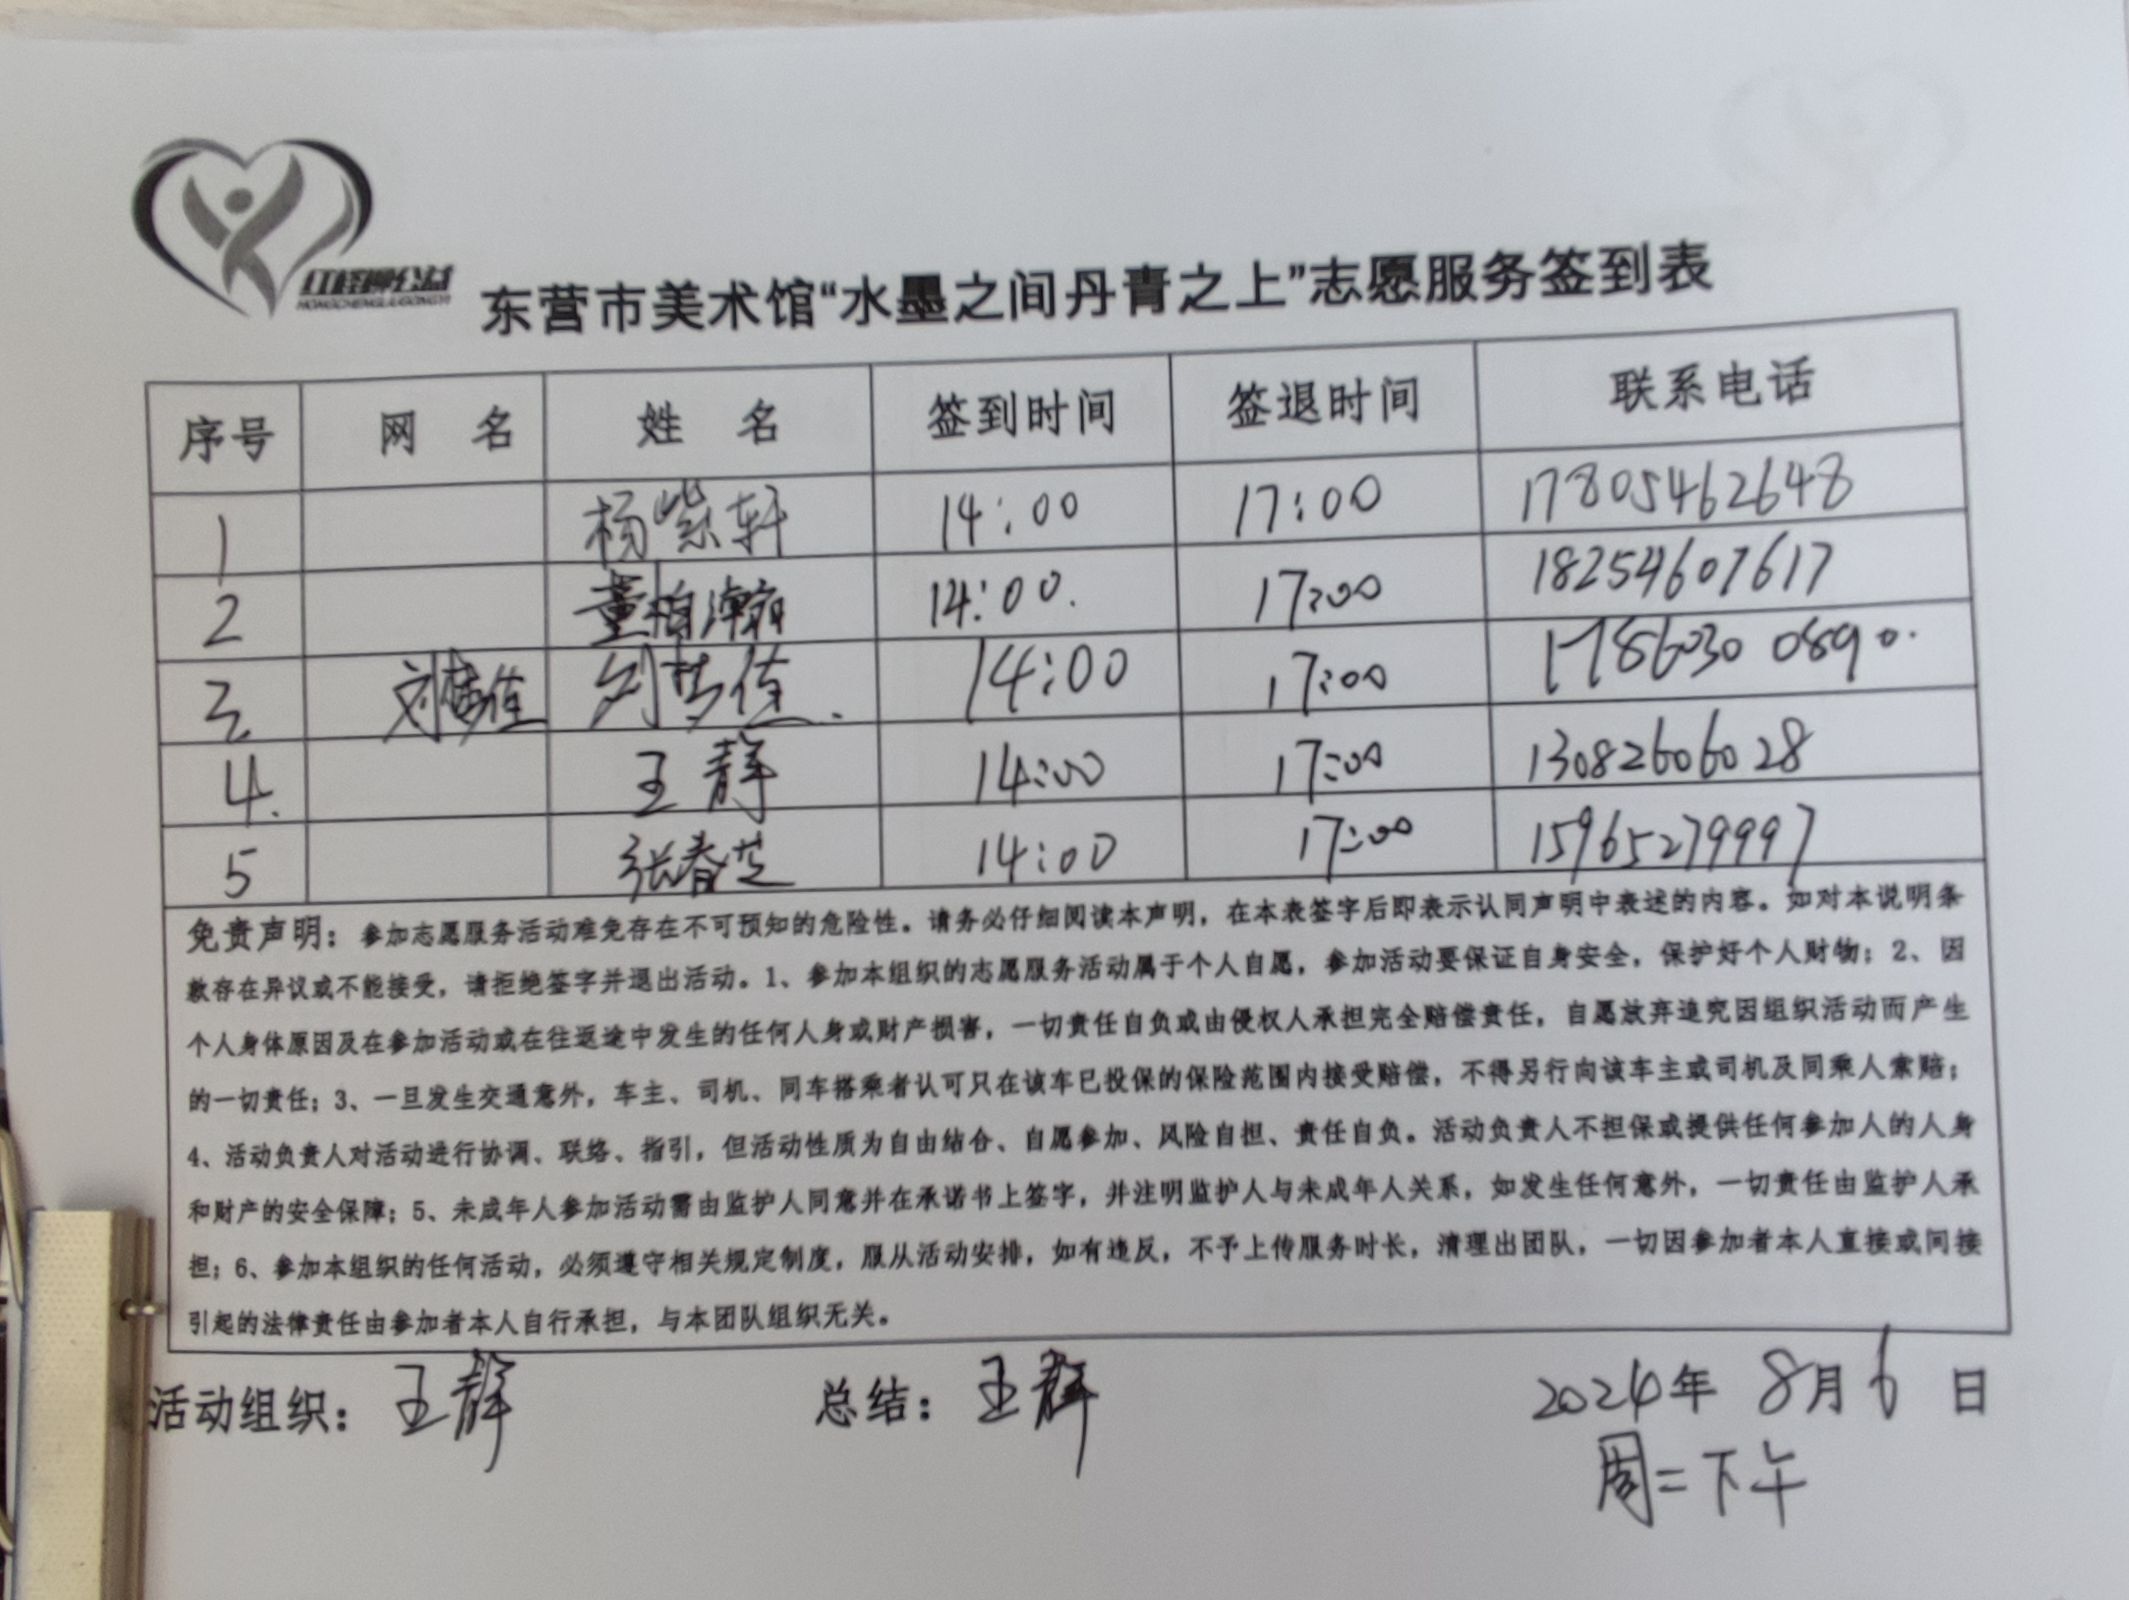 红橙柳公益
东营市美术馆“水墨之间丹青之上”志愿服务签到表
序号 网 名 姓 名 签到时间 签退时间 联系电话
1 杨紫轩 14:00 17:00 17805462648
2 董柏瀚 14:00. 17:00 18254607617
3 14:00 17:00 17860300890.
4. 王静 14:00 17:00 13082606028
5 张春芝 14:00 17:00 15965279997
免责声明：参加志愿服务活动难免存在不可预知的危险性。请务必仔细阅读本声明，在本表签字后即表示认同声明中表述的内容。如对本说明条
款存在异议或不能接受，请拒绝签字并退出活动。1、参加本组织的志愿服务活动属于个人自愿，参加活动要保证自身安全，保护好个人财物；2、因
个人身体原因及在参加活动或在往返途中发生的任何人身或财产损害，一切责任自负或由侵权人承担完全赔偿责任，自愿放弃追究因组织活动而产生
的一切责任；3、一旦发生交通意外，车主、司机、同车搭乘者认可只在该车已投保的保险范围内接受赔偿，不得另行向该车主或司机及同乘人索赔；
4、活动负责人对活动进行协调、联络、指引，但活动性质为自由结合、自愿参加、风险自担、责任自负。活动负责人不担保或提供任何参加人的人身
和财产的安全保障；5、未成年人参加活动需由监护人同意并在承诺书上签字，并注明监护人与未成年人关系，如发生任何意外，一切责任由监护人承
担；6、参加本组织的任何活动，必须遵守相关规定制度，服从活动安排，如有违反，不予上传服务时长，清理出团队，一切因参加者本人直接或间接
引起的法律责任由参加者本人自行承担，与本团队组织无关。
活动组织：王静 总结：王静 2024年 8月6日
周二下午